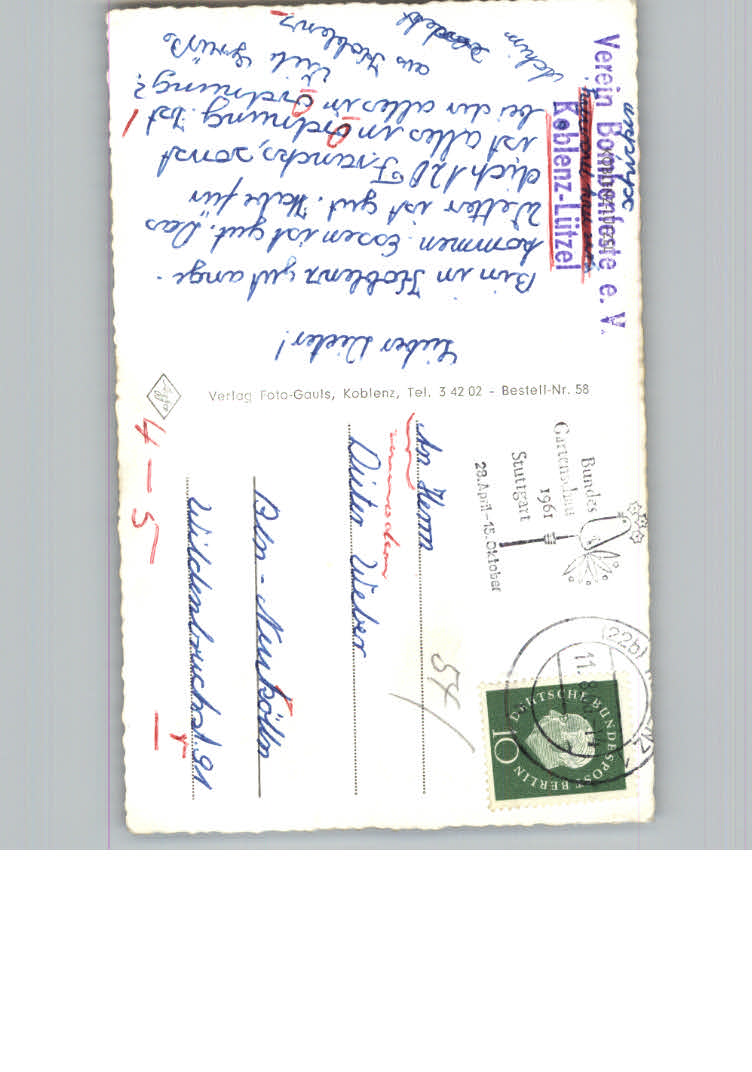 Lieber Dieter!
Bin in Koblenz gut ange-
kommen. Essen ist gut. Das
Wetter ist gut. Habe für
dich 120 F.rancks, sonst
ist alles in Ordnung. Ist
bei dir alles in Ordnung?
Viele Grüße
aus Koblenz
Achim
Verein Bombenfeste e. V.
Koblenz-Lützel
Verlag Foto-Gauls, Koblenz, Tel. 3 42 02 - Bestell-Nr. 58
Bundes
Gartenschau
1961
Stuttgart
28.April-15.Oktober
(22b) KOBLENZ
11. 8.
DEUTSCHE BUNDESPOST BERLIN
10
54
An Herrn
Dieter Weber
Bln-Neukölln
Wildenbruchst. 91
4-5